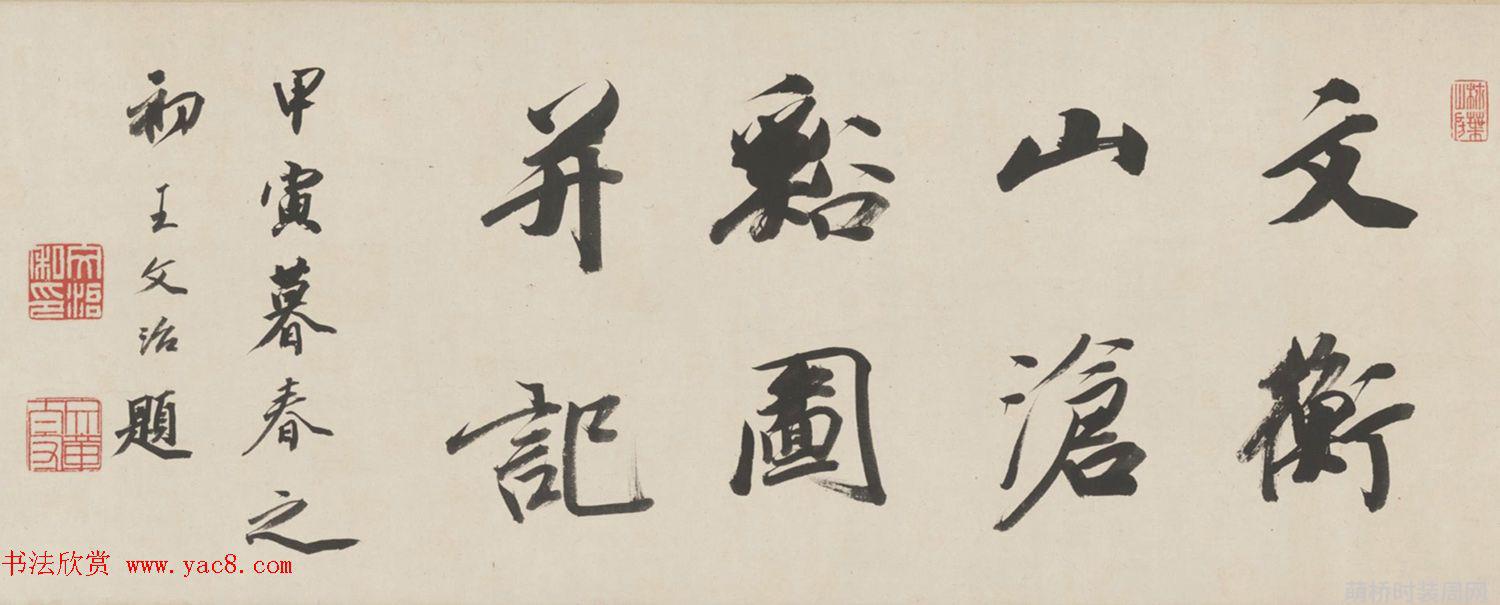 文衡
山滄
谿圖
并記
甲寅暮春之
初王文治題
文治私印
书法欣赏 www.yac8.com
萌桥时装周网